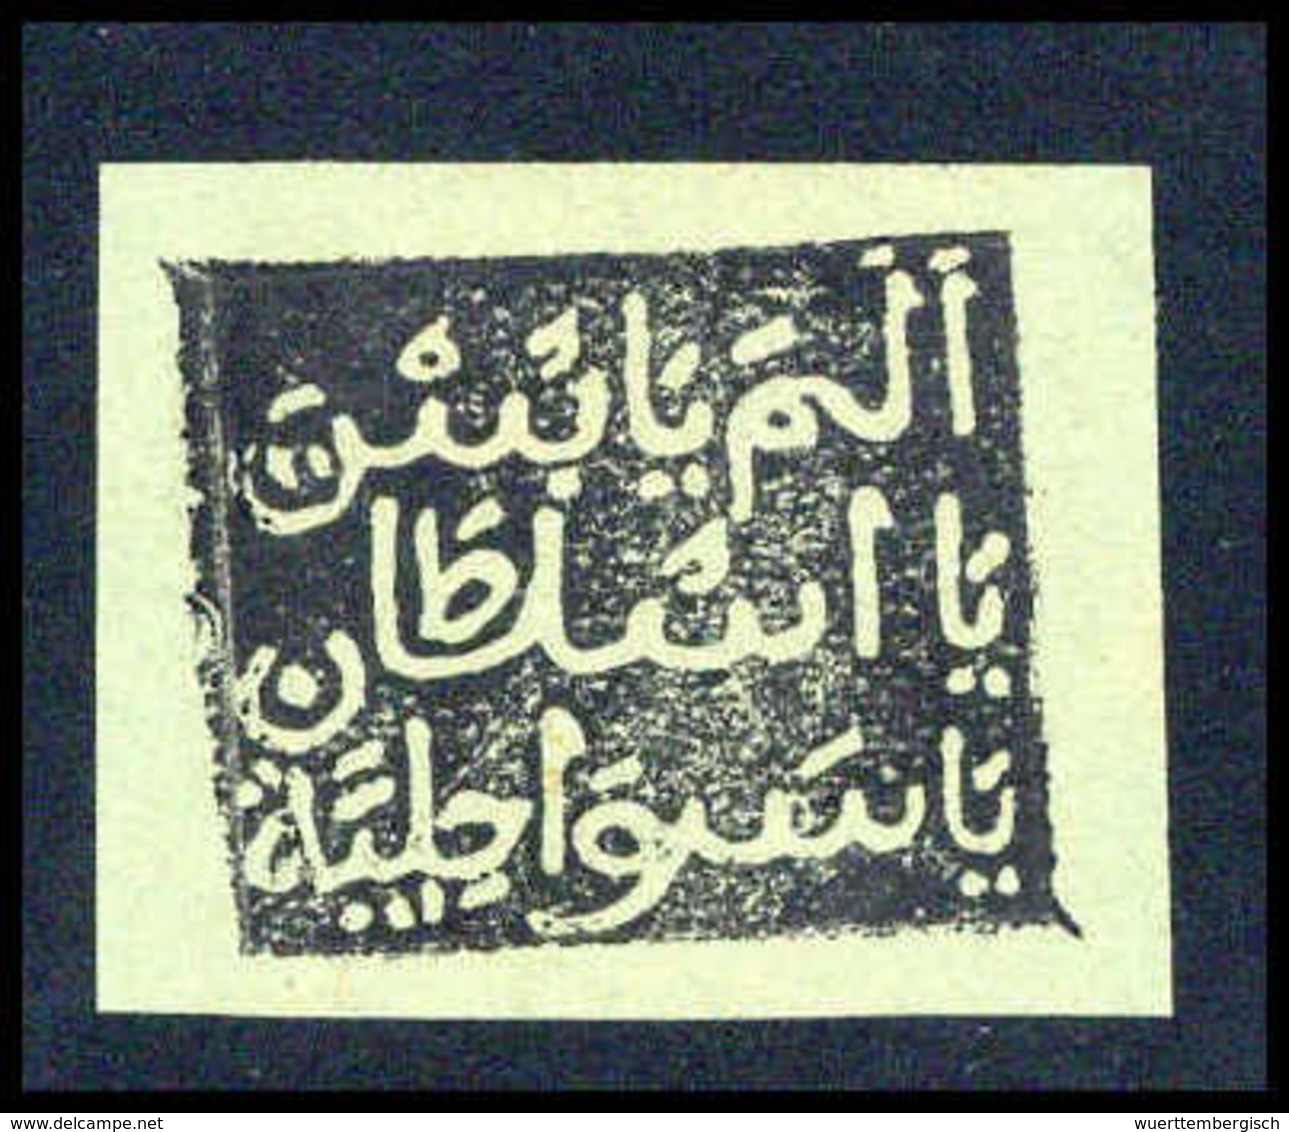 اَلَمَ يَا بَسْتَ
يَا اسُلطَان
يَا سَوَاحِلِيَة
www.delcampe.net
wuerttembergisch